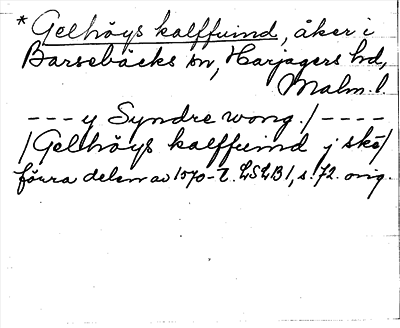 * Gelhöys kalffuind, åker i
Barsebäcks sn, Harjagers hd,
Malm. l.
--- y Syndre wong. / ----
/ Gelhöys kalffuind j skö /
förra delen av 1570-t. LSLB 1, s. 72. orig.